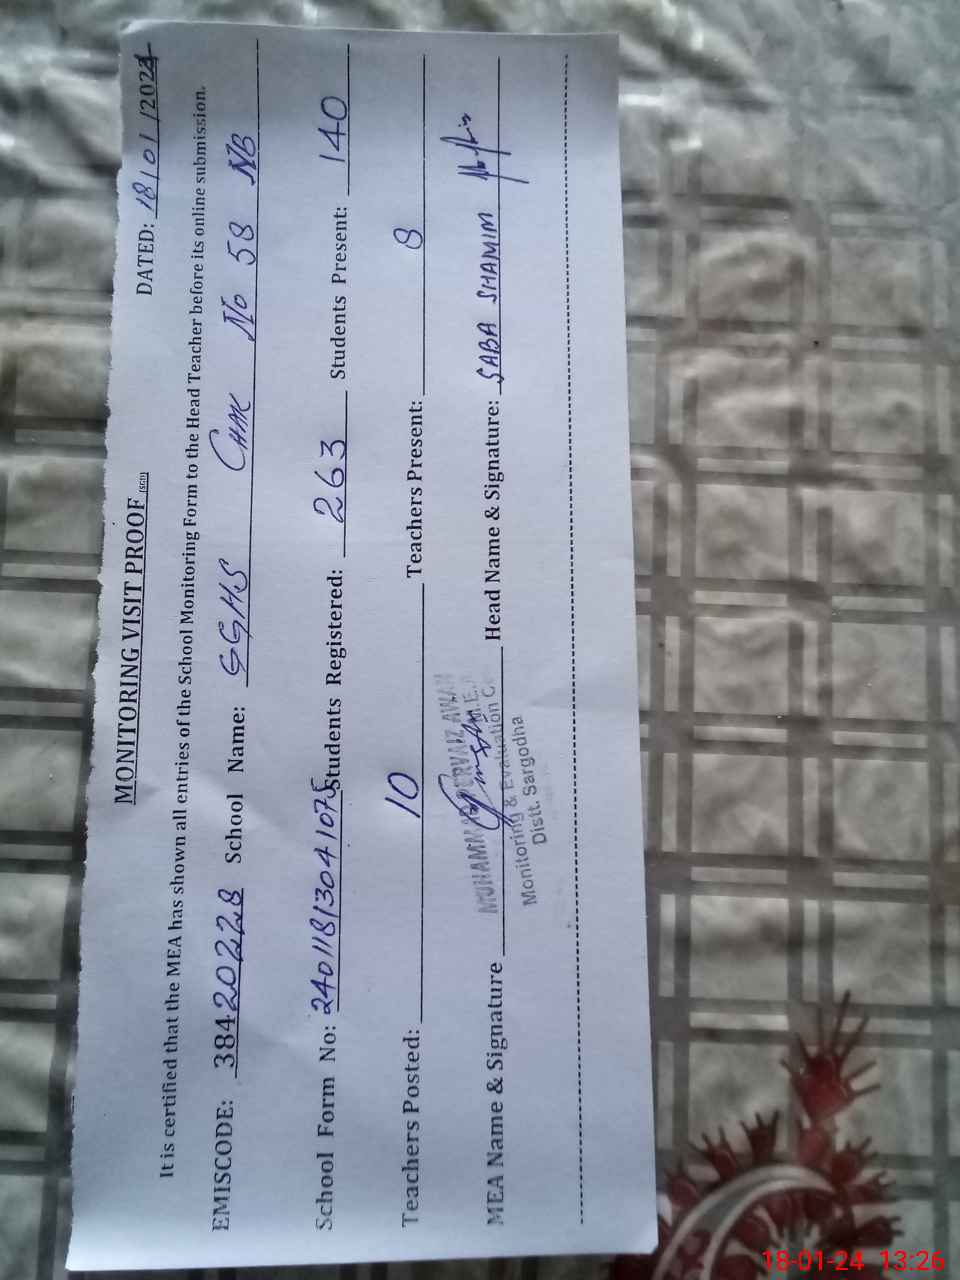 MONITORING VISIT PROOF (SGD)
DATED: 18/01/2024
It is certified that the MEA has shown all entries of the School Monitoring Form to the Head Teacher before its online submission.
EMISCODE: 38420228 School Name: GGHS CHAK No 58 NB
School Form No: 240118130441075 Students Registered: 263 Students Present: 140
Teachers Posted: 10 Teachers Present: 8
MEA Name & Signature Head Name & Signature: SABA SHAMIM
MUHAMMAD PERVAIZ AWAN
M.E.A
Monitoring & Evaluation C.
Distt. Sargodha
18-01-24 13:26